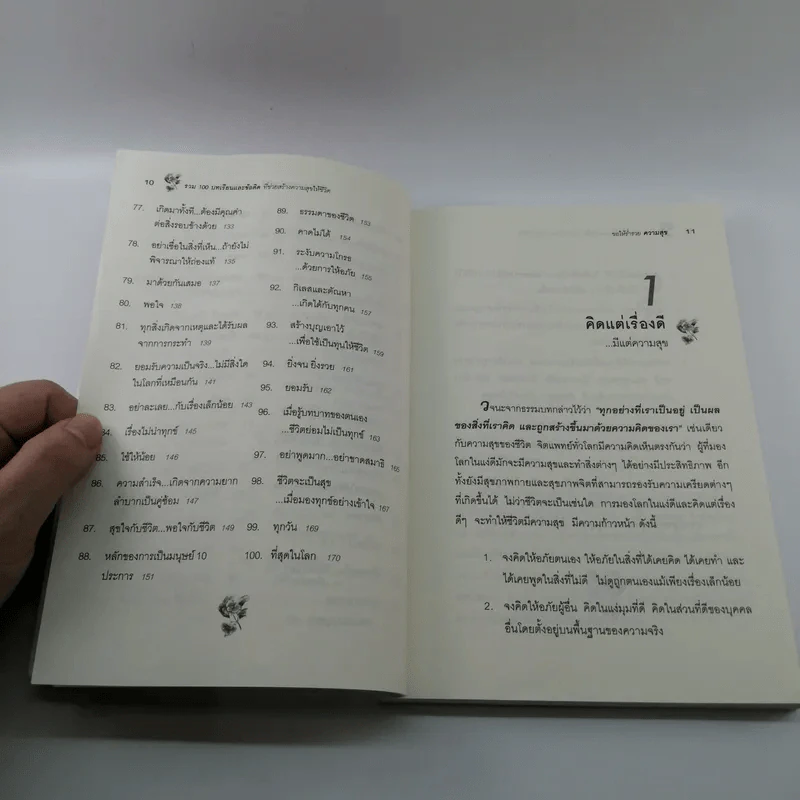 10
รวม 100 บทเรียนและข้อคิด ที่ช่วยสร้างความสุขให้ชีวิต
77. เกิดมาทั้งที...ต้องมีคุณค่า
ต่อสิ่งรอบข้างด้วย 133
78. อย่าเชื่อในสิ่งที่เห็น...ถ้ายังไม่
พิจารณาให้ถ่องแท้ 135
79. มาด้วยกันเสมอ 137
80. พอใจ 138
81. ทุกสิ่งเกิดจากเหตุและได้รับผล
จากการกระทำ 139
82. ยอมรับความเป็นจริง...ไม่มีสิ่งใด
ในโลกที่เหมือนกัน 141
83. อย่าละเลย...กับเรื่องเล็กน้อย 143
84. เรื่องไม่น่าทุกข์ 145
85. ใช้ให้น้อย 146
86. ความสำเร็จ...เกิดจากความยาก
ลำบากเป็นคู่ซ้อม 147
87. สุขใจกับชีวิต...พอใจกับชีวิต 149
88. หลักของการเป็นมนุษย์ 10
ประการ 151
89. ธรรมดาของชีวิต 153
90. คาดไม่ได้ 154
91. ระงับความโกรธ
...ด้วยการให้อภัย 155
92. กิเลสและตัณหา
...เกิดได้กับทุกคน 157
93. สร้างบุญเอาไว้
...เพื่อใช้เป็นทุนให้ชีวิต 159
94. ยิ่งจน ยิ่งรวย 161
95. ยอมรับ 162
96. เมื่อรู้บทบาทของตนเอง
...ชีวิตย่อมไม่เป็นทุกข์ 163
97. อย่าพูดมาก...อย่าขาดสมาธิ 165
98. ชีวิตจะเป็นสุข
...เมื่อมองทุกข์อย่างเข้าใจ 167
99. ทุกวัน 169
100. ที่สุดในโลก 170
ขอให้ร่ำรวย ความสุข 11
1
คิดแต่เรื่องดี
...มีแต่ความสุข
วจนะจากธรรมบทกล่าวไว้ว่า "ทุกอย่างที่เราเป็นอยู่ เป็นผล
ของสิ่งที่เราคิด และถูกสร้างขึ้นมาด้วยความคิดของเรา" เช่นเดียว
กับความสุขของชีวิต จิตแพทย์ทั่วโลกมีความคิดเห็นตรงกันว่า ผู้ที่มอง
โลกในแง่ดีมักจะมีความสุขและทำสิ่งต่างๆ ได้อย่างมีประสิทธิภาพ อีก
ทั้งยังมีสุขภาพกายและสุขภาพจิตที่สามารถรองรับความเครียดต่างๆ
ที่เกิดขึ้นได้ ไม่ว่าชีวิตจะเป็นเช่นใด การมองโลกในแง่ดีและคิดแต่เรื่อง
ดีๆ จะทำให้ชีวิตมีความสุข มีความก้าวหน้า ดังนี้
1. จงคิดให้อภัยตนเอง ให้อภัยในสิ่งที่ได้เคยคิด ได้เคยทำ และ
ได้เคยพูดในสิ่งที่ไม่ดี ไม่ดูถูกตนเองแม้เพียงเรื่องเล็กน้อย
2. จงคิดให้อภัยผู้อื่น คิดในแง่มุมที่ดี คิดในส่วนที่ดีของบุคคล
อื่นโดยตั้งอยู่บนพื้นฐานของความจริง